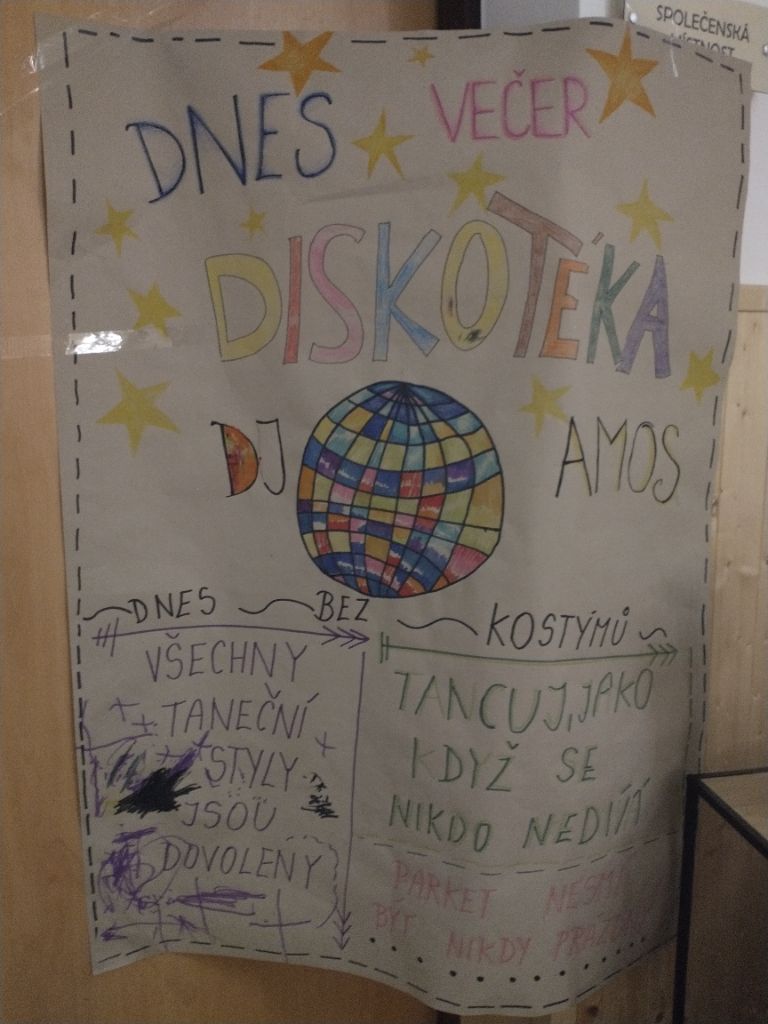 SPOLEČENSKÁ
MÍSTNOST
DNES VEČER
DISKOTÉKA
DJ AMOS
DNES BEZ KOSTÝMŮ
VŠECHNY
TANEČNÍ
STYLY
JSOU
DOVOLENY
TANCUJ, JAKO
KDYŽ SE
NIKDO NEDÍVÁ
PARKET NESMÍ
BÝT NIKDY PRÁZDNÝ